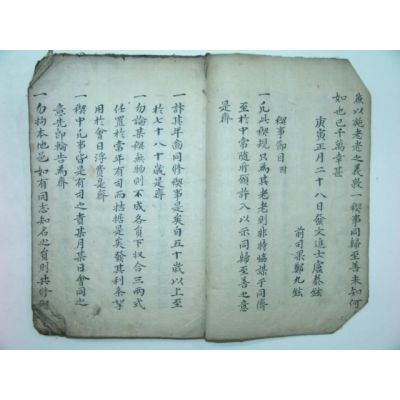 庶以施老老之義敦一稧事同歸至善未知何
如也已千萬幸甚
庚寅正月二十八日發文進士盧泰鉉
前司果鄭九鉉
稧事節目
一凡此稧規只爲其老老則非特恊謀于同濟
至於中常隨所願許入以示同歸至善之意
是齊
一計其年齒同修稧事是矣自五十歲以上至
於七十八十歲是齊
一勿論某稧無物則不成各員下収合三兩式
任置於當年有司而捨摠是矣發其利条
用於會日浮費是齊
一稧中凡事皆是有司之責某月某日會同之
意先即輪告爲齊
一勿拘本他邑如有同志知名之員則共修